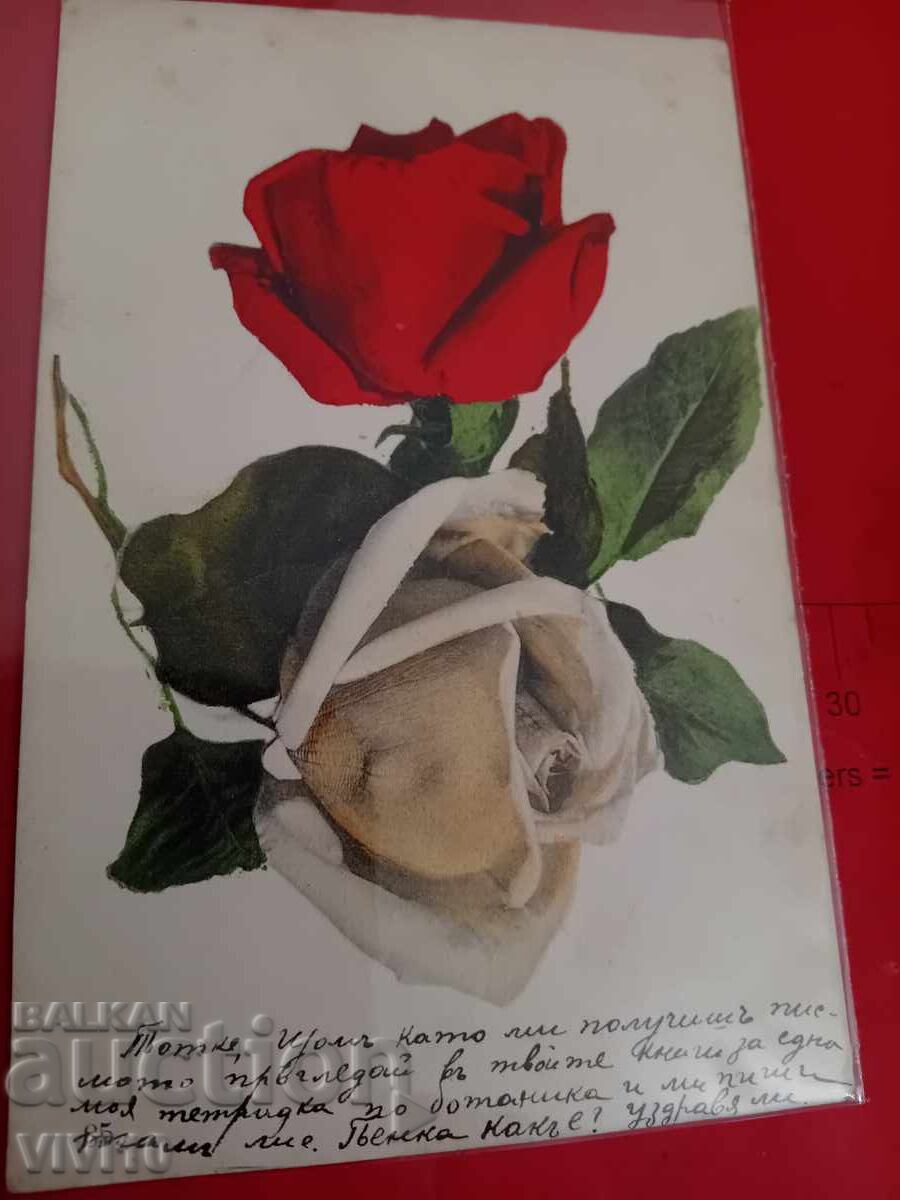 Тотке, Щомъ като ми получишъ пис-
мото прѣгледай въ твоите книги за една
моя тетрадка по ботаника и ми пиши
ми. Пенка какъ е? Уздравя ли.
30
ers =
BALKAN
auction
VIVI10